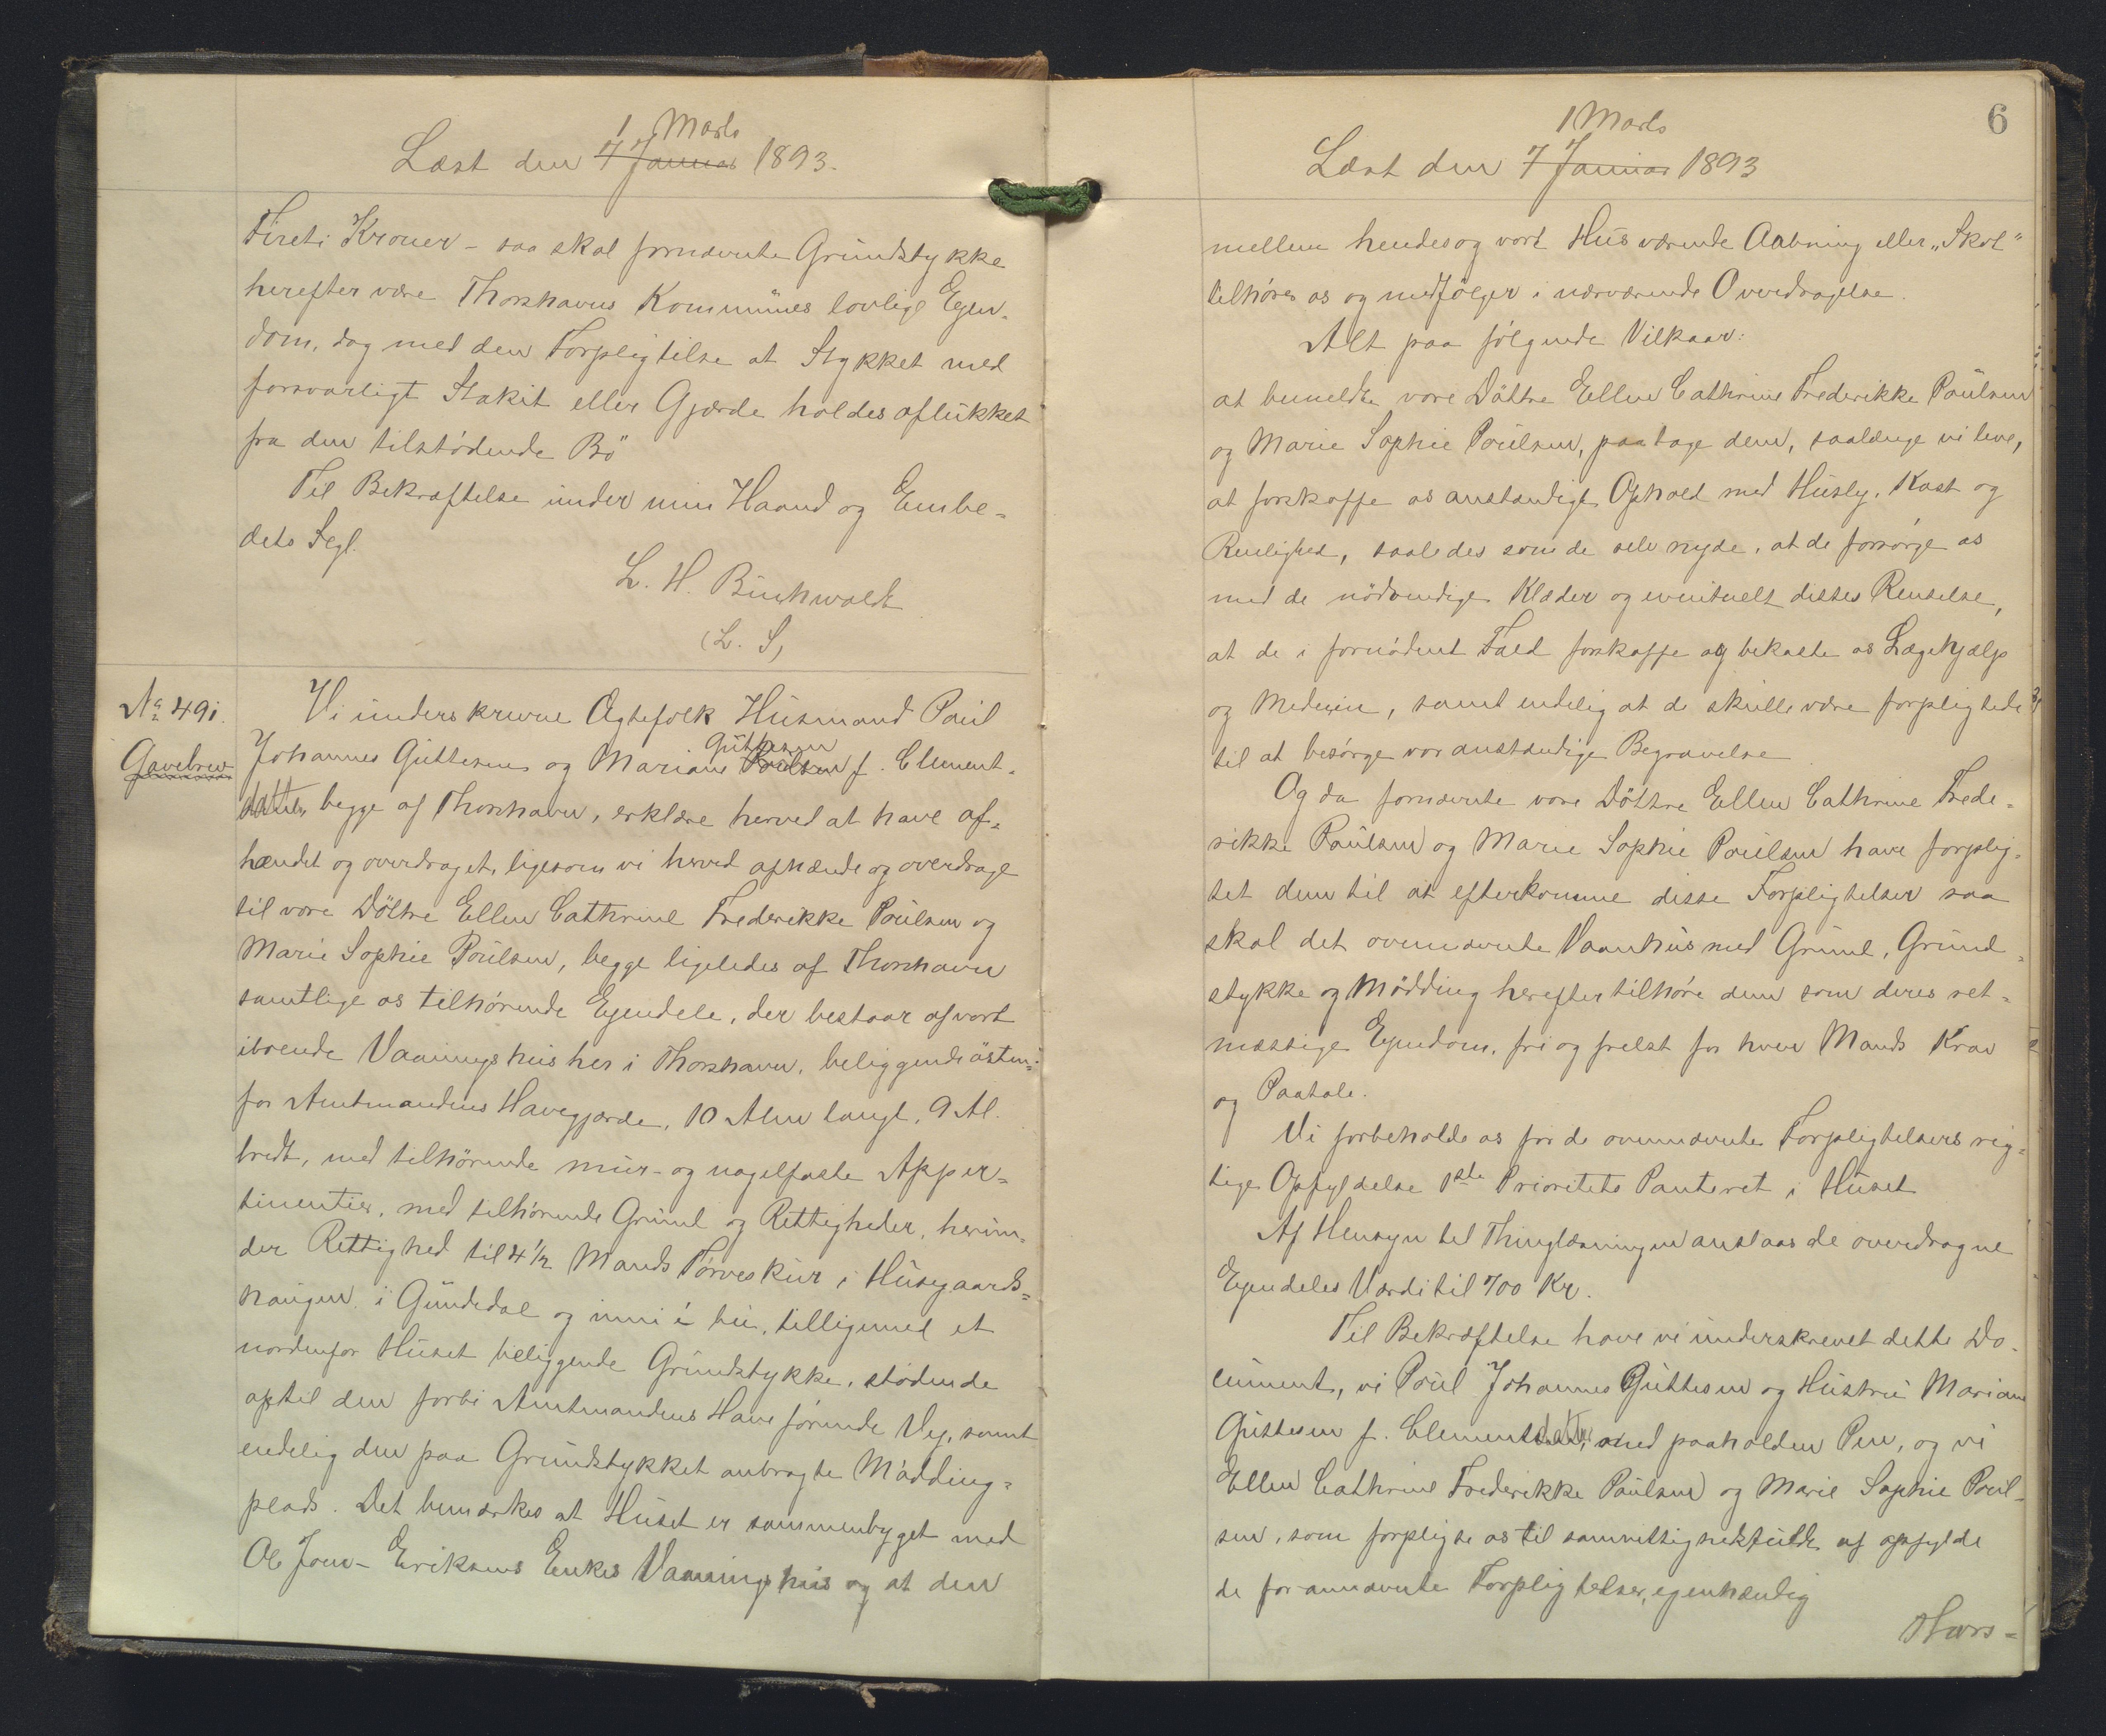 1 Marts
Læst den 7 Januar 1893.
Fireti Kroner - saa skal fornævnte Grundstykke
herefter være Thorshavns Kommunes lovlige Ejen-
dom, dog med den Forpligtilse at Stykket med
forsvarligt Stakit eller Gjærde holdes aflukket
fra den tilstødende Bö
Til Bekræftelse under min Haand og Embe-
dets Segl.
L. H. Buchwaldt
(L. S)
No 491.
Gavebrev
Vi underskrevne Ægtefolk Husmand Poul
Johannes Guttesen og Mariane Poulsen Guttesen f. Clement-
datter, begge af Thorshavn, erklære herved at have af-
hændet og overdraget, ligesom vi herved afhænde og overdrage
til vore Döttre Ellen Cathrine Frederikke Poulsen og
Marie Sophie Poulsen, begge ligeledes af Thorshavn
samtlige os tilhörende Ejendele, der bestaar af vort
iboende Vaaningshus her i Thorshavn, beliggende östen-
for Amtmandens Havegjærde, 10 Alen langt, 9 Al.
bredt, med tilhörende mur- og nagelfaste Apper-
tinentier, med tilhörende Grund og Rettigheder, herun-
der Rettighed til 4 1/2 Mands Törveskur i Husegaards-
haugen i Gundedal og inni í bú, tilligemed et
nordenfor Huset beliggende Grundstykke, stödende
optil den forbi Amtmandens Have förende Vej, samt
endelig den paa Grundstykket anbragte Mödding-
plads. Det bemærkes at Huset er sammenbygget med
Ole Joen-Eriksens Enkes Vaaningshus og at den
6
1 Marts
Læst den 7 Januar 1893
mellem hendes og vort Hus værende Aabning eller „Skot"
tilhörer os og medfölger i nærværende Overdragelse.
Alt paa fölgende Vilkaar:
at bemeldte vore Döttre Ellen Cathrine Frederikke Poulsen
og Marie Sophie Poulsen, paatage dem, saalænge vi leve,
at forskaffe os anstændigt Ophold med Husly, Kost og
Renlighed, saaledes som de selv nyde, at de forsörge os
med de nödvendige Klæder og eventuelt disses Renselse,
at de i fornödent Fald forskaffe og bekoste os Lægehjælp
og Medicin, samt endelig at de skulle være forpligtede
til at besörge vor anstændige Begravelse
Og da fornævnte vore Döttre Ellen Cathrine Frede-
rikke Poulsen og Marie Sophie Poulsen have forplig-
tet dem til at efterkomme disse Forpligtelser saa
skal det ovennævnte Vaanhus med Grund, Grund-
stykke og Mödding herefter tilhöre dem som deres ret-
mæssige Ejendom, fri og frelst for hver Mands Krav
og Paatale.
Vi forbeholde os for de ovennævnte Forpligtelsers rig-
tige Opfyldelse 1ste Prioritets Panteret i Huset
Af Hensyn til Thinglæsningen anslaas de overdragne
Ejendeles Værdi til 700 Kr.
Til Bekræftelse have vi underskrevet dette Do-
cument, vi Poul Johannes Guttesen og Hustru Mariane
Guttesen f. Clementdatter, med paaholden Pen, og vi
Ellen Cathrine Frederikke Poulsen og Marie Sophie Poul-
sen, som forpligte os til samvittighedsfuldt at opfylde
de forannævnte Forpligtelser, egenhændig
Thors-